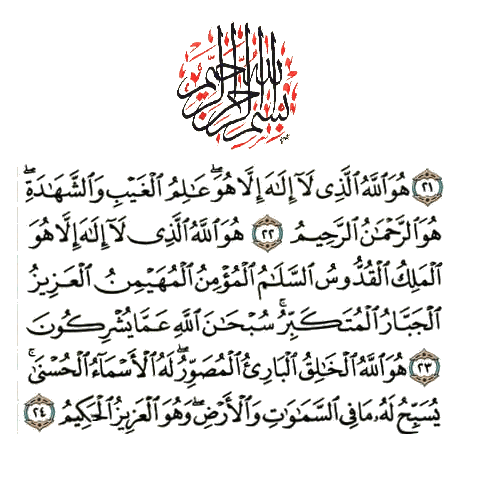 بسم الله الرحمن الرحيم
٢١ هُوَ ٱللَّهُ ٱلَّذِى لَآ إِلَٰهَ إِلَّا هُوَۖ عَٰلِمُ ٱلْغَيْبِ وَٱلشَّهَٰدَةِۖ
هُوَ ٱلرَّحْمَٰنُ ٱلرَّحِيمُ ٢٢ هُوَ ٱللَّهُ ٱلَّذِى لَآ إِلَٰهَ إِلَّا هُوَ
ٱلْمَلِكُ ٱلْقُدُّوسُ ٱلسَّلَٰمُ ٱلْمُؤْمِنُ ٱلْمُهَيْمِنُ ٱلْعَزِيزُ
ٱلْجَبَّارُ ٱلْمُتَكَبِّرُۚ سُبْحَٰنَ ٱللَّهِ عَمَّا يُشْرِكُونَ
٢٣ هُوَ ٱللَّهُ ٱلْخَٰلِقُ ٱلْبَارِئُ ٱلْمُصَوِّرُۖ لَهُ ٱلْأَسْمَآءُ ٱلْحُسْنَىٰۚ
يُسَبِّحُ لَهُۥ مَا فِى ٱلسَّمَٰوَٰتِ وَٱلْأَرْضِۖ وَهُوَ ٱلْعَزِيزُ ٱلْحَكِيمُ ٢٤